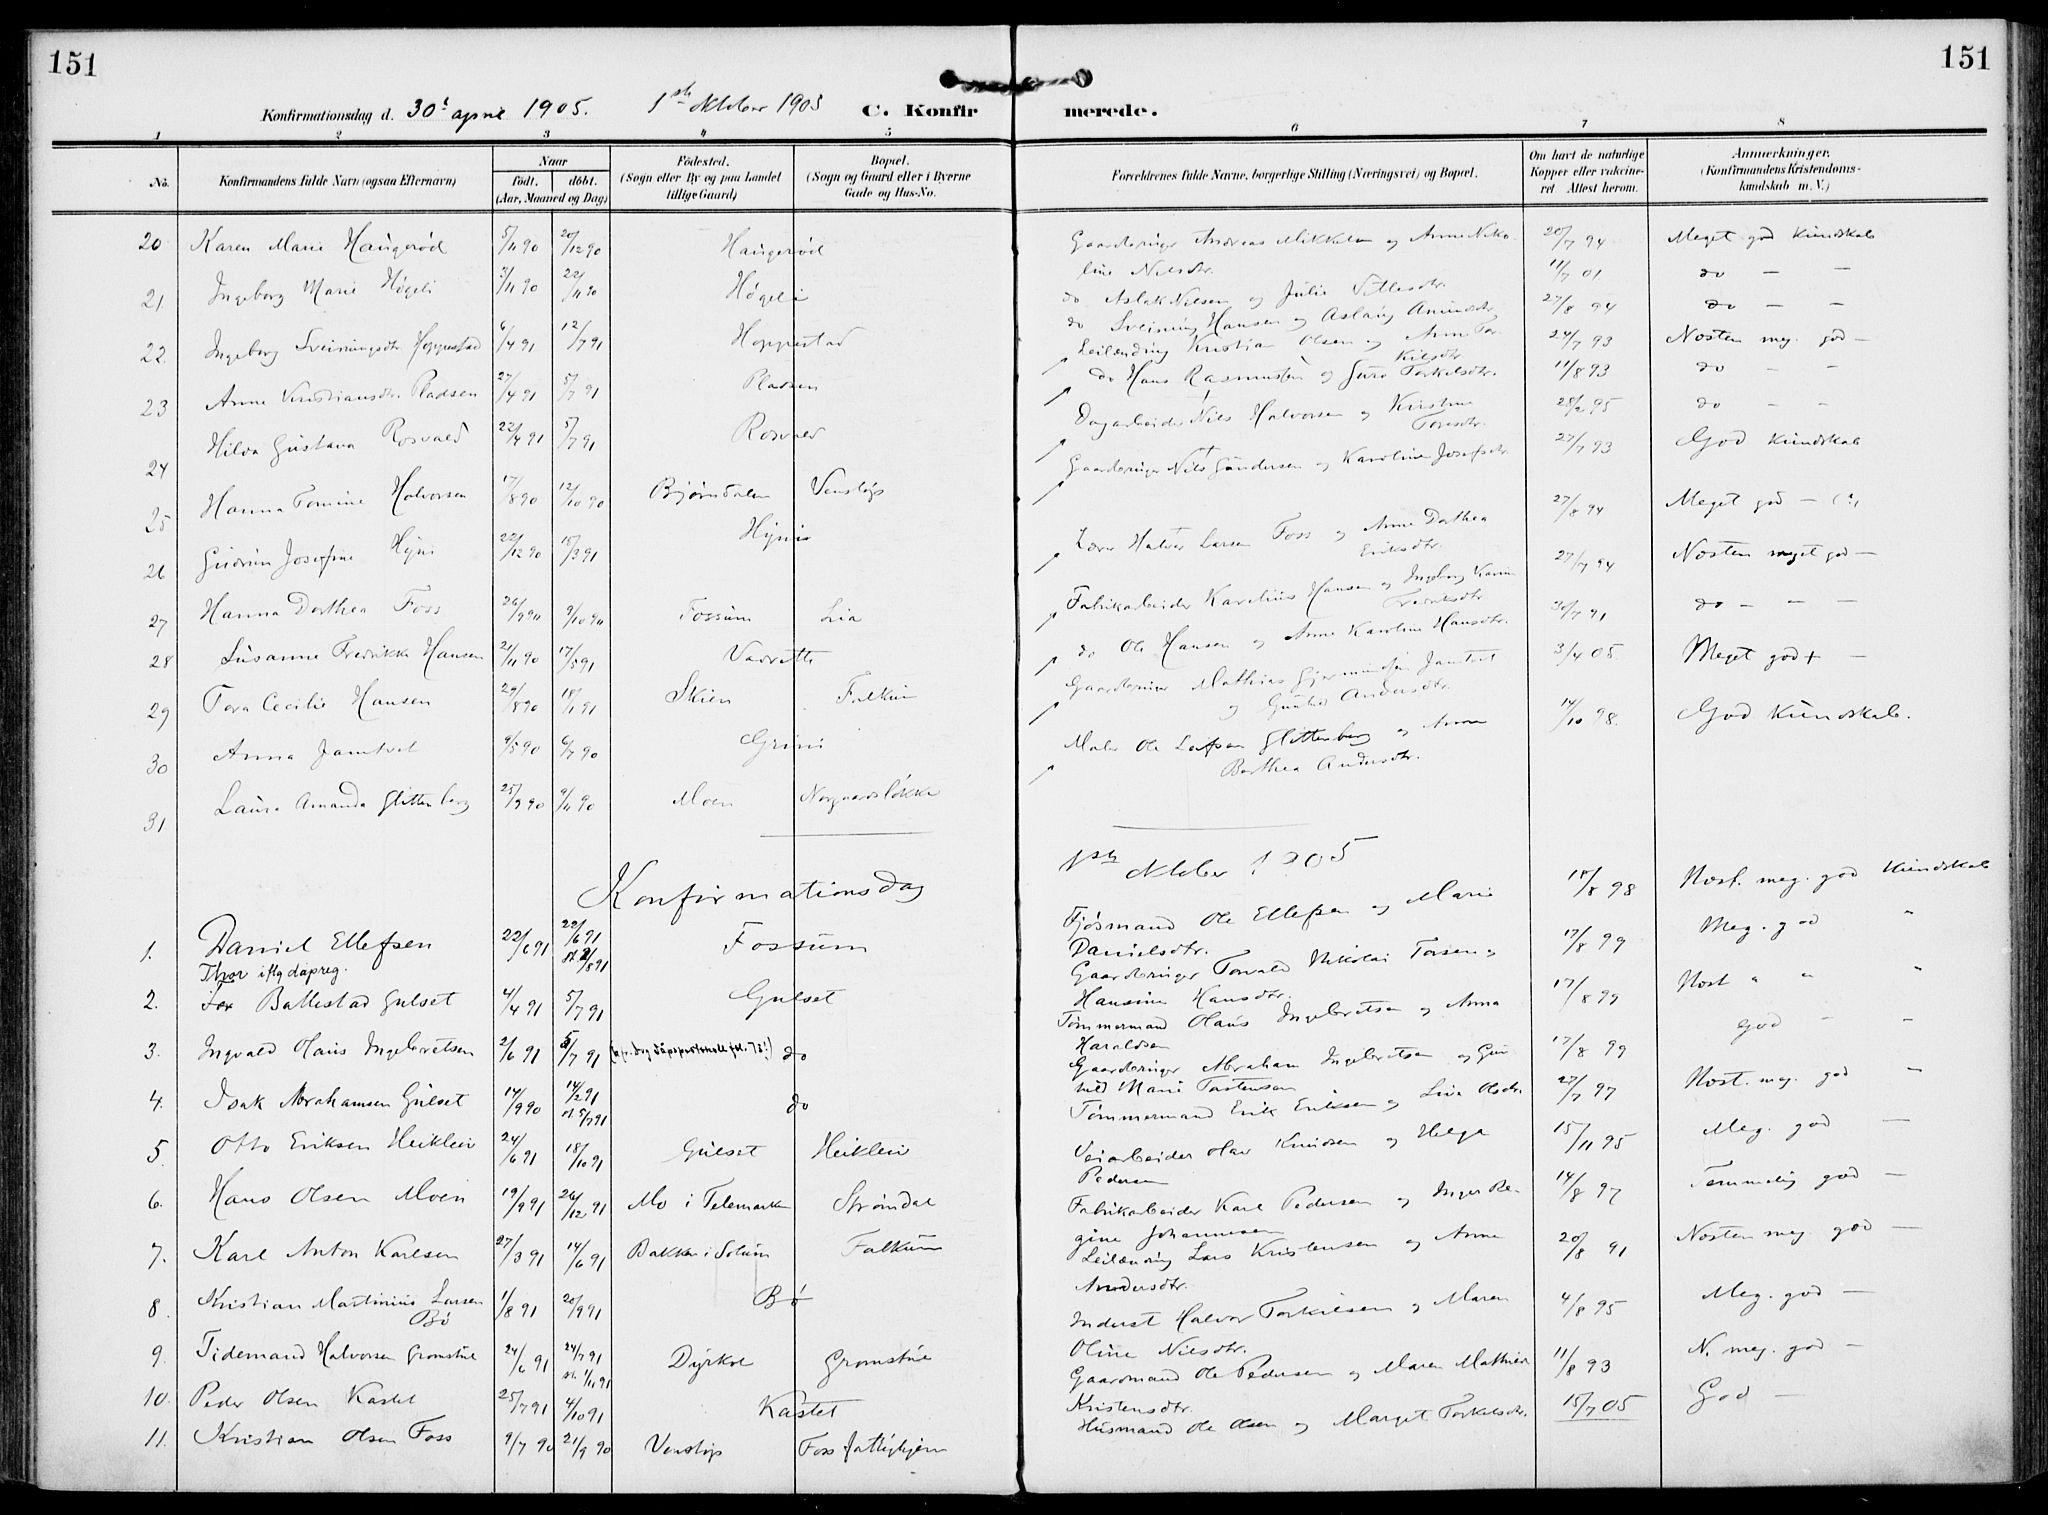 151
151
Konfirmationsdag d. 30te april 1905. 1ste Oktober 1905 C. Konfirmerede.
1 2 3 4 5 6 7 8
No. Konfirmandens fulde Navn (ogsaa Efternavn) Naar født. døbt. (Aar, Maaned og Dag) Fødested. (Sogn eller By og paa Landet tillige Gaard) Bopæl. (Sogn og Gaard eller i Byerne Gade og Hus-No. Forældrenes fulde Navne, borgerlige Stilling (Næringsvei) og Bopæl. Om havt de naturlige Kopper eller vakcineret Attest herom. Anmærkninger. (Konfirmandens Kristendomskundskab m. V.)
20 Karen Marie Haugerød 5/11 90 20/12 90 Haugerød Gaardbruger Andreas Mikkelsen og Anne Nikoline Nilsdtr. 20/7 94 Meget god kundskab
21 Ingeborg Marie Høgeli 3/11 90 22/11 90 Høgeli do Aslak Nilsen og Julie 11/7 01 do — —
22 Ingeborg Sveinungsdtr. Hoppestad 6/4 91 12/7 91 Hoppestad do Sveinung Hansen og Aslaug Amundsdtr. 27/8 94 do — —
23 Anne Kristiansdtr. Pladsen 27/4 91 5/7 91 Pladsen Leilænding Kristian Olsen og Anne Torkilsdtr. 24/7 93 Næsten meg. god —
24 Hilda Gustava Rosvald 22/4 91 5/7 91 Rosvald do Hans Rasmussen og Guro Torkelsdtr. 11/8 93 do — —
25 Hanna Tomine Halvorsen 17/8 90 12/10 90 Bjørndalen Venstøp Dagarbeider Nils Halvorsen og Kirstine Toresdtr. 28/2 95 do — —
26 Gudrun Josefine Hyni 22/12 90 15/3 91 Hyni Gaardbruger Nils Gundersen og Karoline Josefsdtr. 27/7 93 God kundskab
27 Hanna Dorthea Foss 26/9 90 9/10 90 Fossum Lia Lærer Halvor Larsen Foss og Anne Dorthea Eriksdtr. 27/8 94 Meget god —
28 Susanne Fredrikke Hansen 21/11 90 17/5 91 Vadrette Fabrikarbeider Karelius Hansen og Ingeborg Karine Fredriksdtr. 27/7 94 Næsten meget god —
29 Tora Cecilie Hansen 29/8 90 18/1 91 Skien Falkum do Ole Hansen og Anne Karoline Hansdtr. 30/7 91 do — — —
30 Anna Jamtvet 9/5 90 6/7 90 Grini Gaardbruger Mathias Gjermundsen Jamtvet og Gunhild Andersdtr. 3/4 05 Meget god + —
31 Laura Amanda Glittenberg 25/9 90 9/11 90 Moen Norgaardsløkka Maler Ole Leifsen Glittenberg og Anne Berthea Andersdtr. 14/10 98. God kundskab.
Konfirmationsdag 1ste Oktober 1905
1. Daniel Ellefsen 22/6 91 22/6 91 st. 2/8 91 Fossum Fjøsmand Ole Ellefsen og Marie Danielsdtr. 18/8 98 Næst. meg. god kundskab
Thor iflg dåpreg.
2. Tor Ballestad Gulset 4/4 91 5/7 91 Gulset Gaardbruger Torvald Nikolai Torsen og Hansine Hansdtr. 17/8 99 Meg. god "
3. Ingvald Olaus Ingebretsen 2/6 91 5/7 91 do Tømmermand Olaus Ingebretsen og Anna Haraldsen 17/8 99 Næst " " "
4. Isak Abrahamsen Gulset 14/9 90 14/2 91 st. 5/7 91 do Gaardbruger Abraham Ingebretsen og Gunhild Marie Torstensen 17/8 99 God " "
5. Otto Eriksen Heikleiv 24/6 91 18/10 91 Gulset Heikleiv Tømmermand Erik Eriksen og Liva Olsdtr. 27/7 97 Næst. meg. god "
6. Hans Olsen Moen 19/9 91 26/12 91 Mo i Telemarken Strømdal Veiarbeider Olav Knudsen og Helga Pedersen 15/11 95 Meg. god —
7. Karl Anton Karlsen 27/3 91 14/6 91 Bakken i Solum Falkum Fabrikarbeider Karl Pedersen og Inger Regine Johannesen 14/8 97 Temmelig god —
8. Kristian Martinius Larsen Bø 1/8 91 20/9 91 Bø Leilænding Lars Kristensen og Anne Andersdtr. 20/8 91 Næsten meg. god —
9. Tidemand Halvorsen Gromstul 24/6 91 24/7 91 st. 1/11 91 Dyrkol Gromstul Inderst Halvor Torkilsen og Maren Oline Nilsdtr. 4/8 95 Meg. god —
10. Peder Olsen Kastet 25/7 91 4/10 91 Kastet Gaardmand Ole Pedersen og Maren Mathea Kristensdtr. 11/8 93 N. meg. god —
11. Kristian Olsen Foss 9/7 90 21/9 90 Venstøp Foss fattighjem Husmand Ole Olsen og Marget Torkelsdtr. 15/7 05 God —